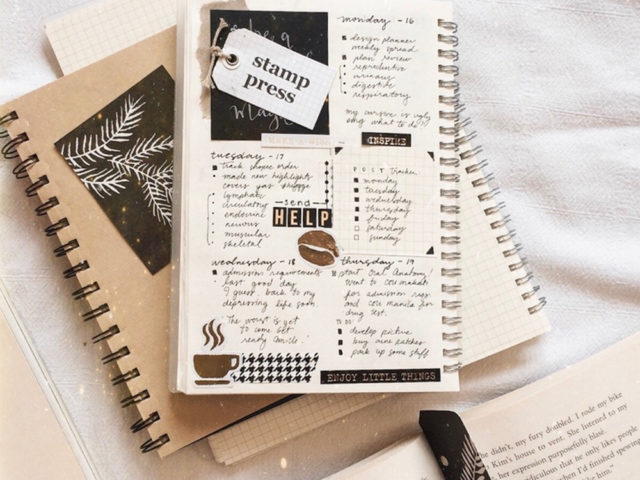 stamp
press
monday - 16
design planner
weekly spread
plan review
reproductive
urinary
digestive
respiratory
my cursive is ugly
omg what to do?!
INSPIRE
tuesday - 17
track shopee order
made new highlights
covers yas
lymphatic
circulatory
endocrine
nervous
muscular
skeletal
send
HELP
POST Tracker
monday
tuesday
wednesday
thursday
friday
saturday
sunday
wednesday - 18
admission requirements
last good day
I guess. back to my
depressing life soon.
The worst is yet
to come get
ready
thursday - 19
start Oral Anatomy!
went to ceu makati
for admission reqs
and ceu manila for
drug test.
TO DO:
develop picture
buy acne patches
pack up some stuff
ENJOY LITTLE THINGS
he didn't, my fury doubled. I rode my bike
Kim's house to vent. She listened to my
her expression purposefully blasé.
ridiculous that he only likes people
when I'd finished spewing
like him."